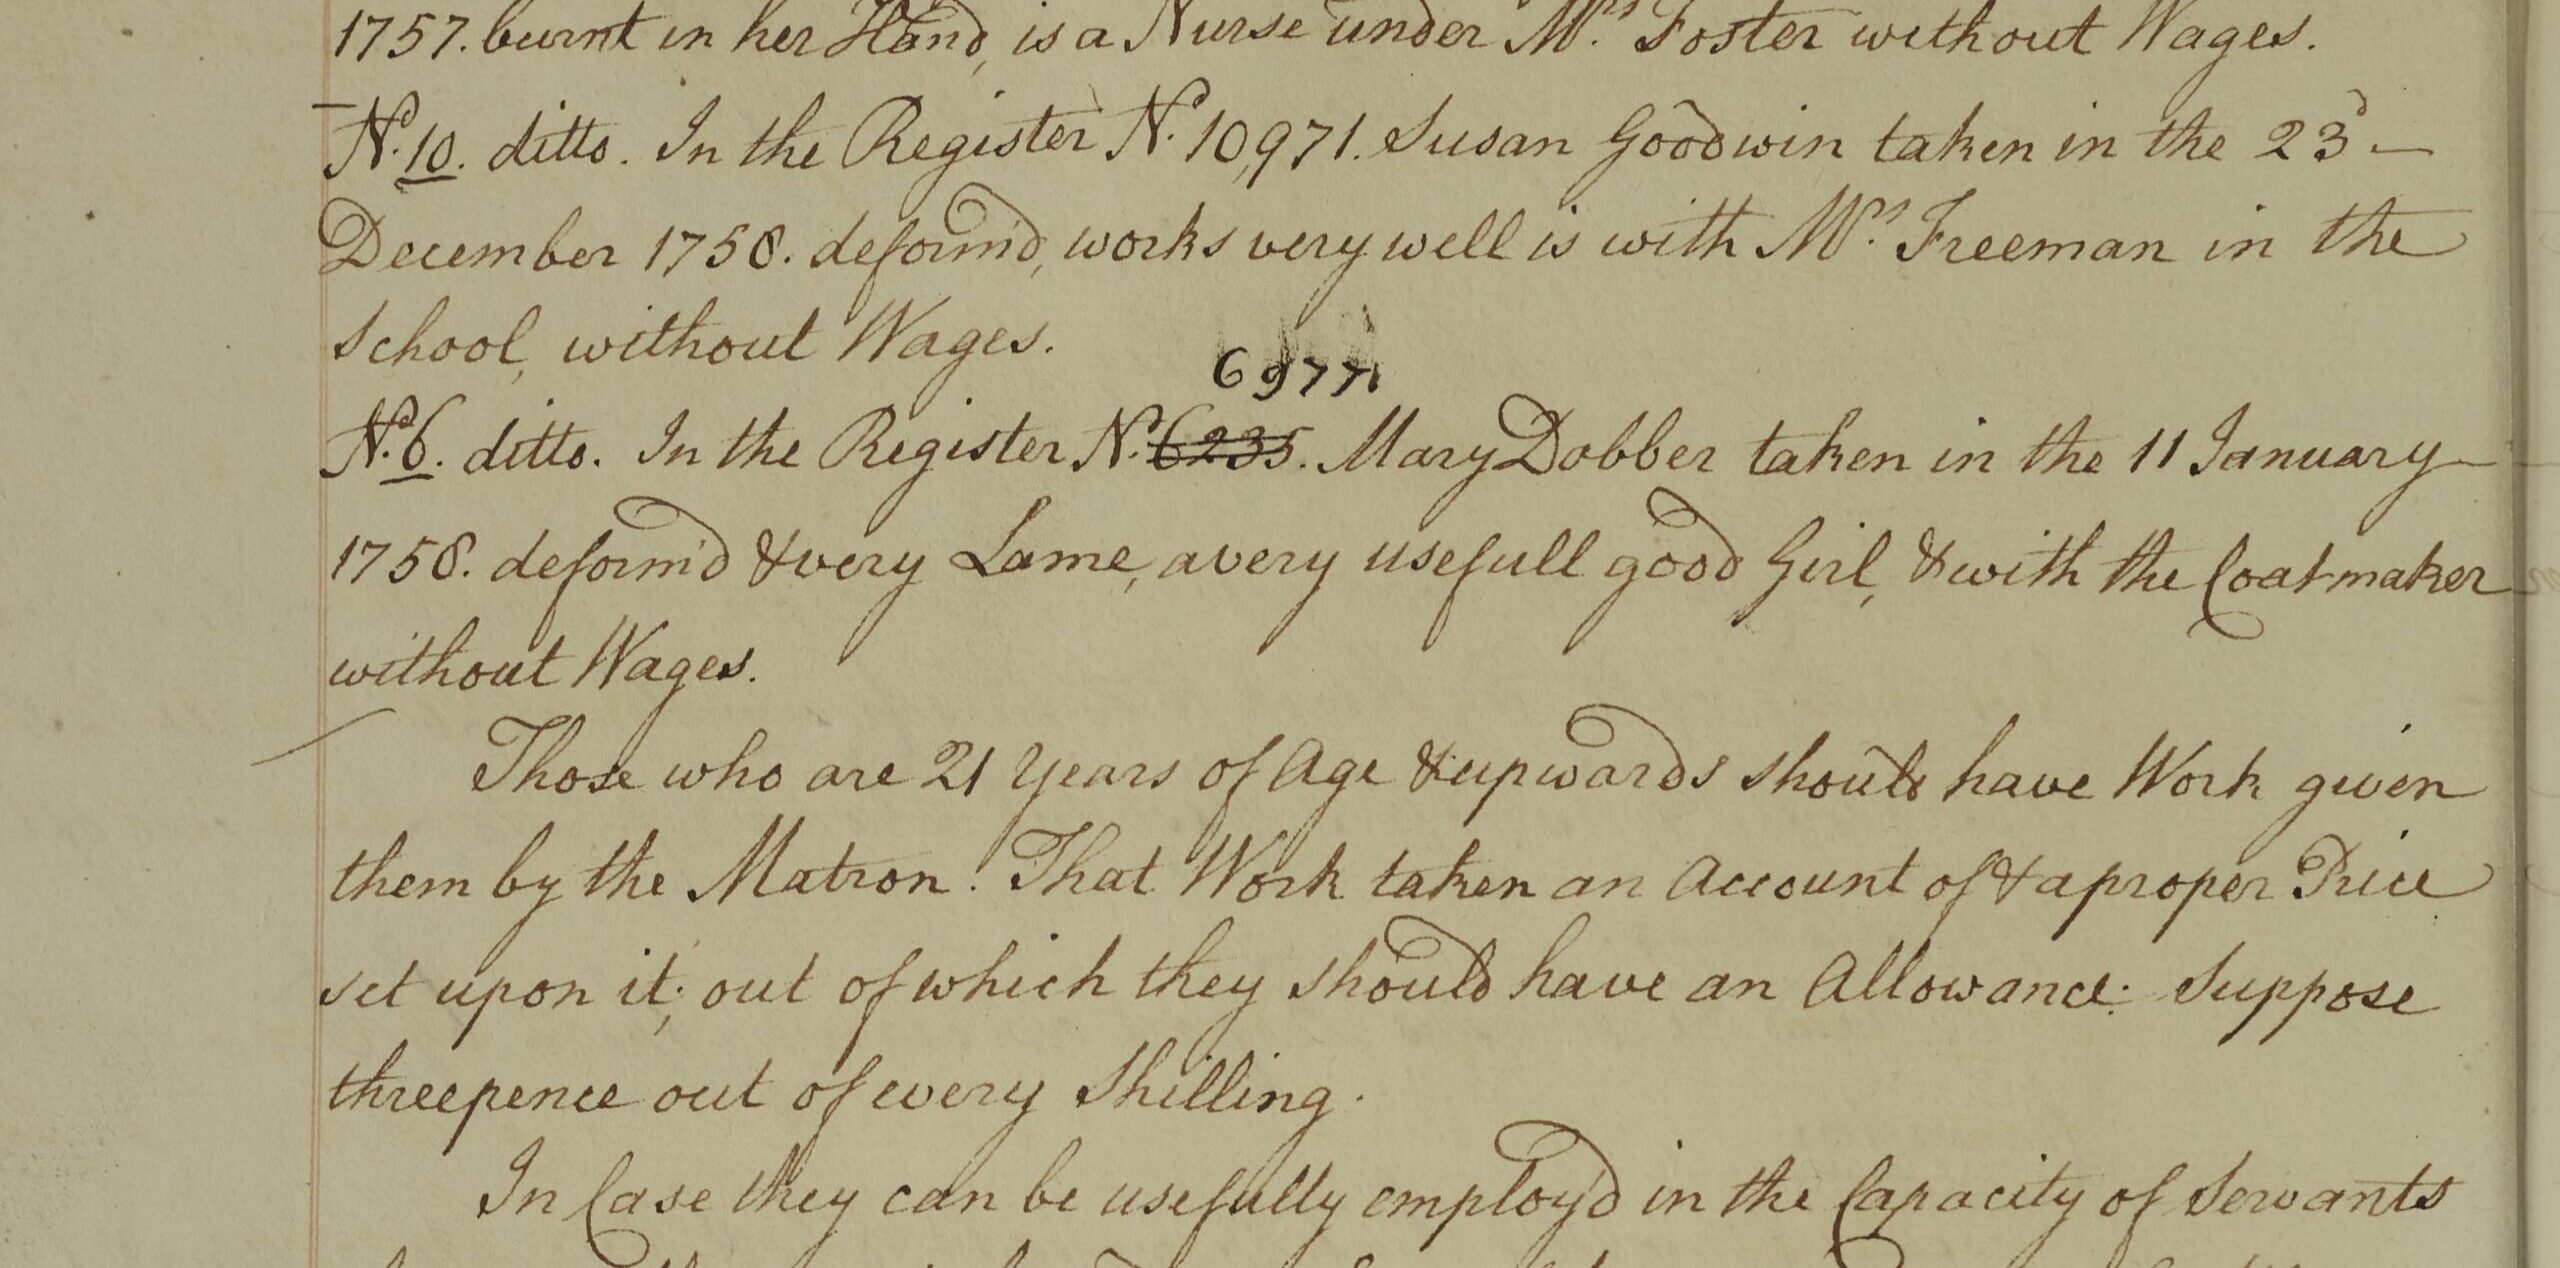 1757. burnt in her Hand, is a Nurse under Mrs. Foster without Wages.
No. 10. ditto. In the Register No. 10,971. Susan Goodwin taken in the 23d —
December 1758. deform'd, works very well is with Mrs. Freeman in the
School, without Wages.
6977
No. 6. ditto. In the Register No. 6235. Mary Dobber taken in the 11 January
1758. deform'd & very Lame, a very usefull good Girl, & with the Coat-maker
without Wages.
Those who are 21 Years of Age & upwards should have Work given
them by the Matron. That Work taken an Account of & a proper Price
set upon it; out of which they should have an Allowance: Suppose
threepence out of every Shilling.
In Case they can be usefully employ'd in the Capacity of Servants